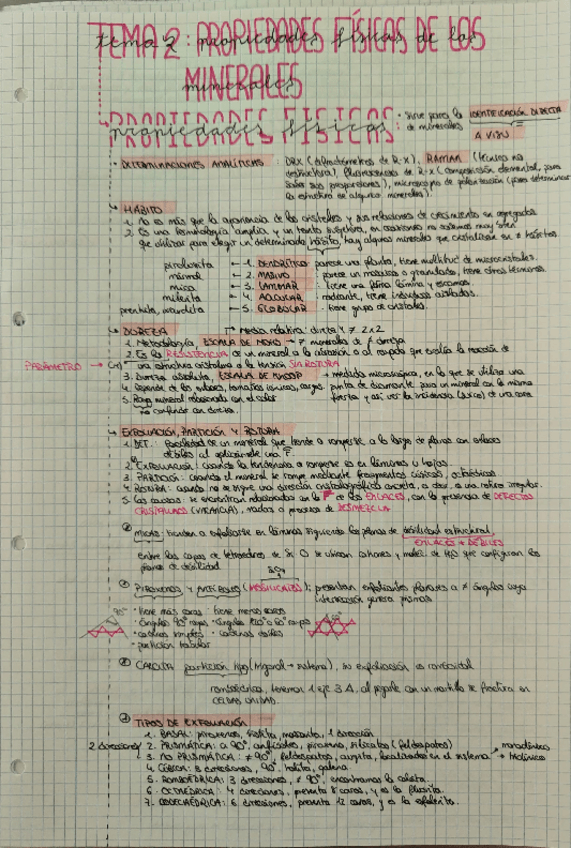 TEMA 2: PROPIEDADES FÍSICAS DE LOS
MINERALES
PROPIEDADES FISICAS
• Sirve para la IDENTIFICACIÓN DIRECTA
de minerales
A VISU
• DETERMINACIONES ANALÍTICAS : DRX (difractómetros de R-x), RAMAN (técnica no
destructiva), Fluorescencia de R-x (composición elemental, para
saber sus proporciones), microscopio de polarización (para determinar
la estructura de algunos minerales).
HÁBITO
1. No es más que la apariencia de los cristales y sus relaciones de crecimiento en agregados
2. Es una terminología amplia y un tanto subjetiva, en ocasiones no sabremos muy bien
que utilizar para elegir un determinado hábito, hay algunos minerales que cristalizan en ≠ hábitos
pirolusita ← 1. DENDRÍTICO: parece una planta, tiene multitud de microcristales.
← 2. MASIVO : parece un masivo o granulados, tiene otros términos.
mica ← 3. LAMINAR : tiene una física lámina y escamas.
← 4. ACICULAR : radiante, tiene individuos aislados.
prehnita, ← 5. GLOBULAR : tiene grupo de cristales.
DUREZA → Medida relativa: directa y ≠ 2x2
1. Metodología, ESCALA DE MOHS → ≠ minerales de ≠ dureza
2. Es la RESISTENCIA de un mineral a la abrasión o al rayado que evalúa la reacción de
PARÁMETRO → una estructura cristalina a la tensión SIN ROTURA
3. Dureza absoluta, ESCALA DE KNOOP → medida microscópica, en la que se utiliza una
4. Depende de los enlaces, tamaños iónicos, cargas punta de diamante para un mineral con la misma
5. Raya mineral relacionada con el color fuerza y así ver la incidencia de una cara
no confundir con dureza.
EXFOLIACIÓN, PARTICIÓN Y ROTURA
1. DEF. : Facilidad de un material que tiende a romperse a lo largo de planos con enlaces
débiles al aplicársele una F.
2. EXFOLIACIÓN : cuando la tendencia a romperse es en láminas u hojas
3. PARTICIÓN : cuando el material se rompe mediante fragmentos cúbicos, octaédricos
4. ROTURA : cuando no se sigue una dirección cristalográfica concreta, es decir, a una rotura irregular.
5. Las causas : se encuentran relacionadas con la F de los ENLACES, con la presencia de DEFECTOS
CRISTALINOS (VACANCIA), maclas o procesos de DESMEZCLA
MICAS : tienden a exfoliarse en láminas siguiendo los planos de debilidad estructural
ENLACES + DÉBILES
Entre las capas de tetraedros de Si O se ubican cationes y moléc. de H₂O que configuran los
planos de debilidad
PIROXENOS y ANFÍBOLES (INOSILICATOS); presentan exfoliantes planares a ≠ ángulos cuya
intersección genera prismas
90° • tiene más caras • tiene menos caras
• ángulos 90° rayas • ángulos 120° o 60° rayas 60°
• cadenas simples • cadenas dobles
• partición tabular
CALCITA partición (trigonal → sistema), su exfoliación es romboidal
romboédrica, tenemos 1 eje 3 A, al pegarle con un martillo se fractura en
CELDAS UNIDAD.
TIPOS DE EXFOLIACIÓN
1. BASAL: piroxenos, moscovita, 1 dirección
2 direcciones 2. PRISMÁTICA: a 90°, anfíboles, piroxeno, silicatos (feldespatos)
3. NO PRISMÁTICA: ≠ 90°, feldespatos, augita, localizados en el sistema → monoclínico
→ triclínico
4. CÚBICA: 3 direcciones, 90°, halita, galena.
5. ROMBOÉDRICA: 3 direcciones, ≠ 90°, encontramos la calcita.
6. OCTAÉDRICA: 4 direcciones, presenta 8 caras, y es la fluorita.
7. DODECAÉDRICA: 6 direcciones, presenta 12 caras, y es la esfalerita.